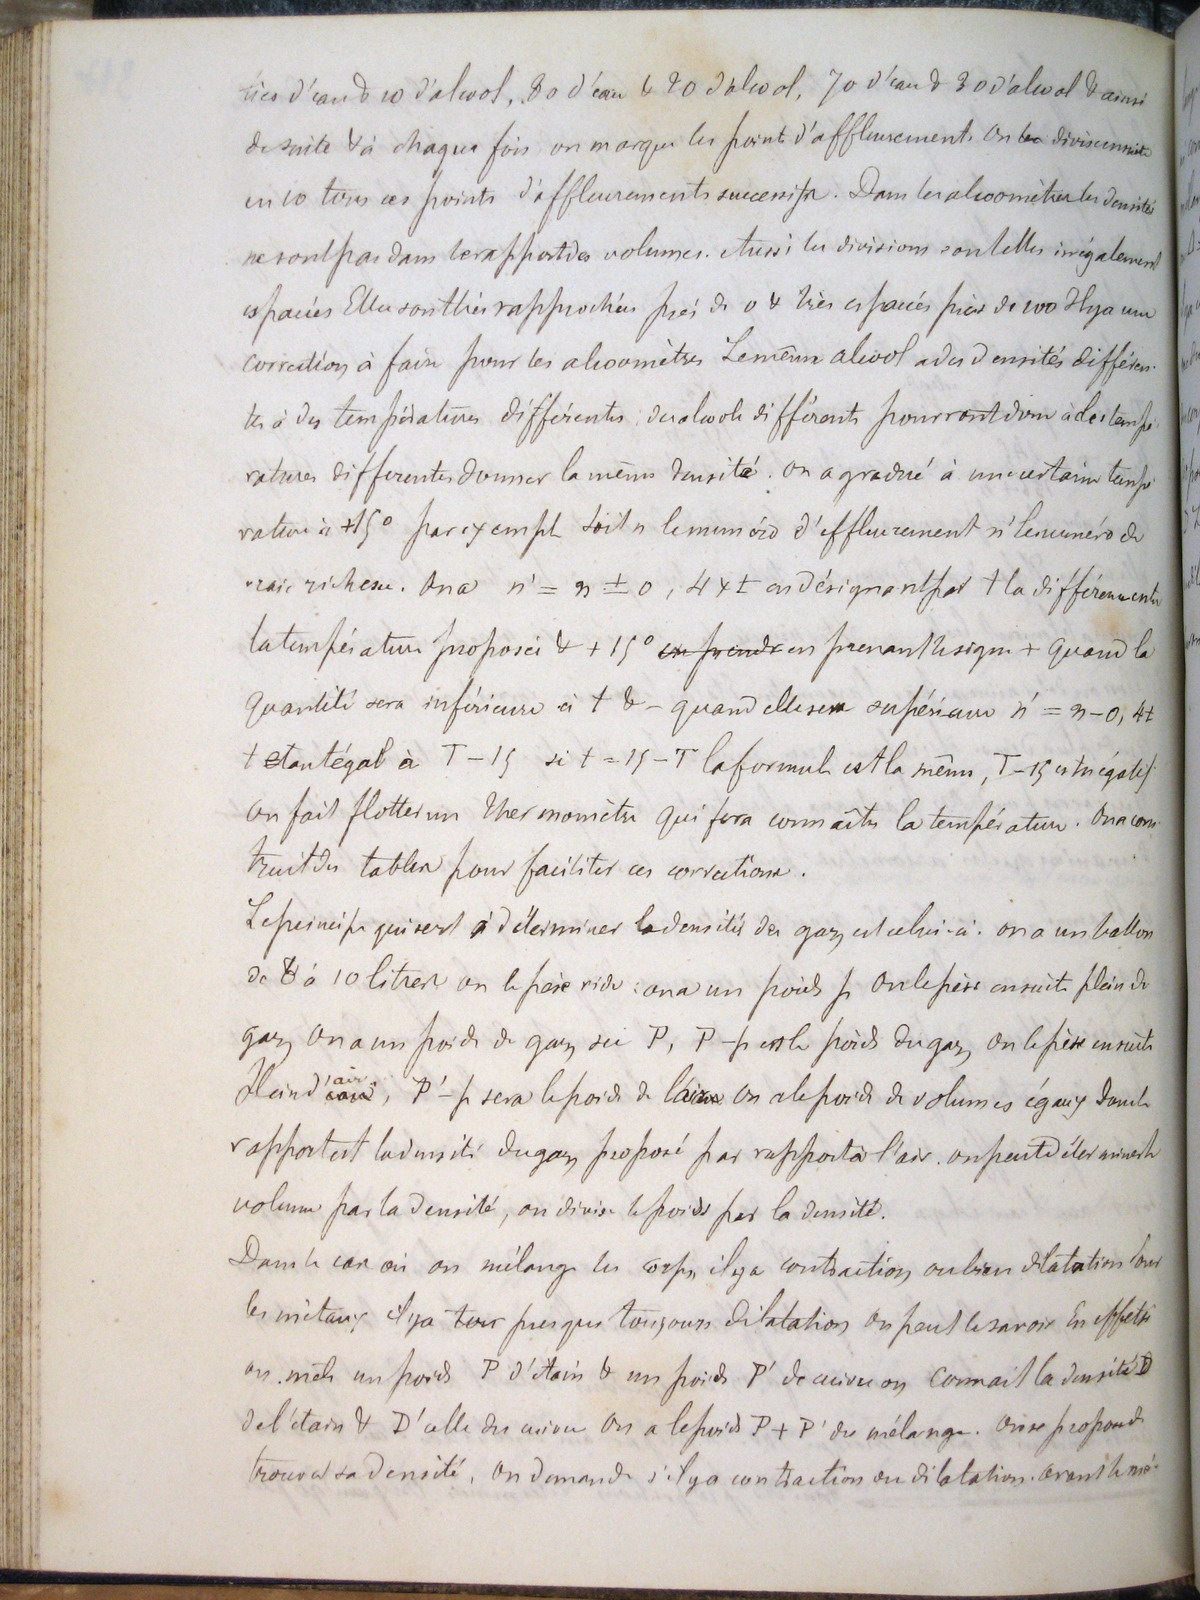 ties d'eau & 10 d'alcool, 80 d'eau & 20 d'alcool, 70 d'eau & 30 d'alcool & ainsi
de suite & à chaque fois on marque les points d'affleurements on divise ensuite
en 10 tous ces points d'affleurements successifs. Dans les alcoomètres les densités
ne sont pas dans le rapport des volumes. Aussi les divisions sont elles inégalement
espacées Elles sont très rapprochées près de 0 & très espacées près de 100 Il y a une
correction à faire pour les alcoomètres Le même alcool a des densités différen-
tes à des températures différentes des alcools différents pourront donc à des tempé-
ratures differentes donner la même densité. on a gradué à une certaine tempé-
rature à +15° par exemple Soit n le numéro d'affleurement n' le numéro de
vraie richesse. On a n' = n ± 0,4 x t en désignant par t la différence entre
la température proposée & + 15° en prende en prenant le signe + quand la
quantité sera inférieure à t & - quand elle sera supérieure n' = n - 0,4t
t étant égal à T - 15 si t = 15 - T la formule est la même, T - 15 est négatif
on fait flotter un thermomètre qui fera connaître la température. On a cons-
truit des tables pour faciliter ces corrections.
Le principe qui sert à déterminer la densité des gaz est celui-ci. on a un ballon
de 8 à 10 litres on le pèse vide : on a un poids p On le pèse ensuite plein de
gaz on a un poids de gaz sec P, P - p est le poids du gaz on le pèse ensuite
plein d'air, P' - p sera le poids de l'air on a le poids de volumes égaux dont le
rapport est la densité du gaz proposé par rapport à l'air. on peut déterminer le
volume par la densité, on divise le poids par la densité.
Dans le cas où on mélange les corps, il y a contraction ou bien dilatation pour
les métaux il y a presque toujours dilatation on peut le savoir En effet si
on mêle un poids P d'étain & un poids P' de cuivre on connaît la densité D
de l'étain & D' celle du cuivre on a le poids P + P' du mélange. On se propose de
trouver sa densité, on demande s'il y a contraction ou dilatation. avant le mé-